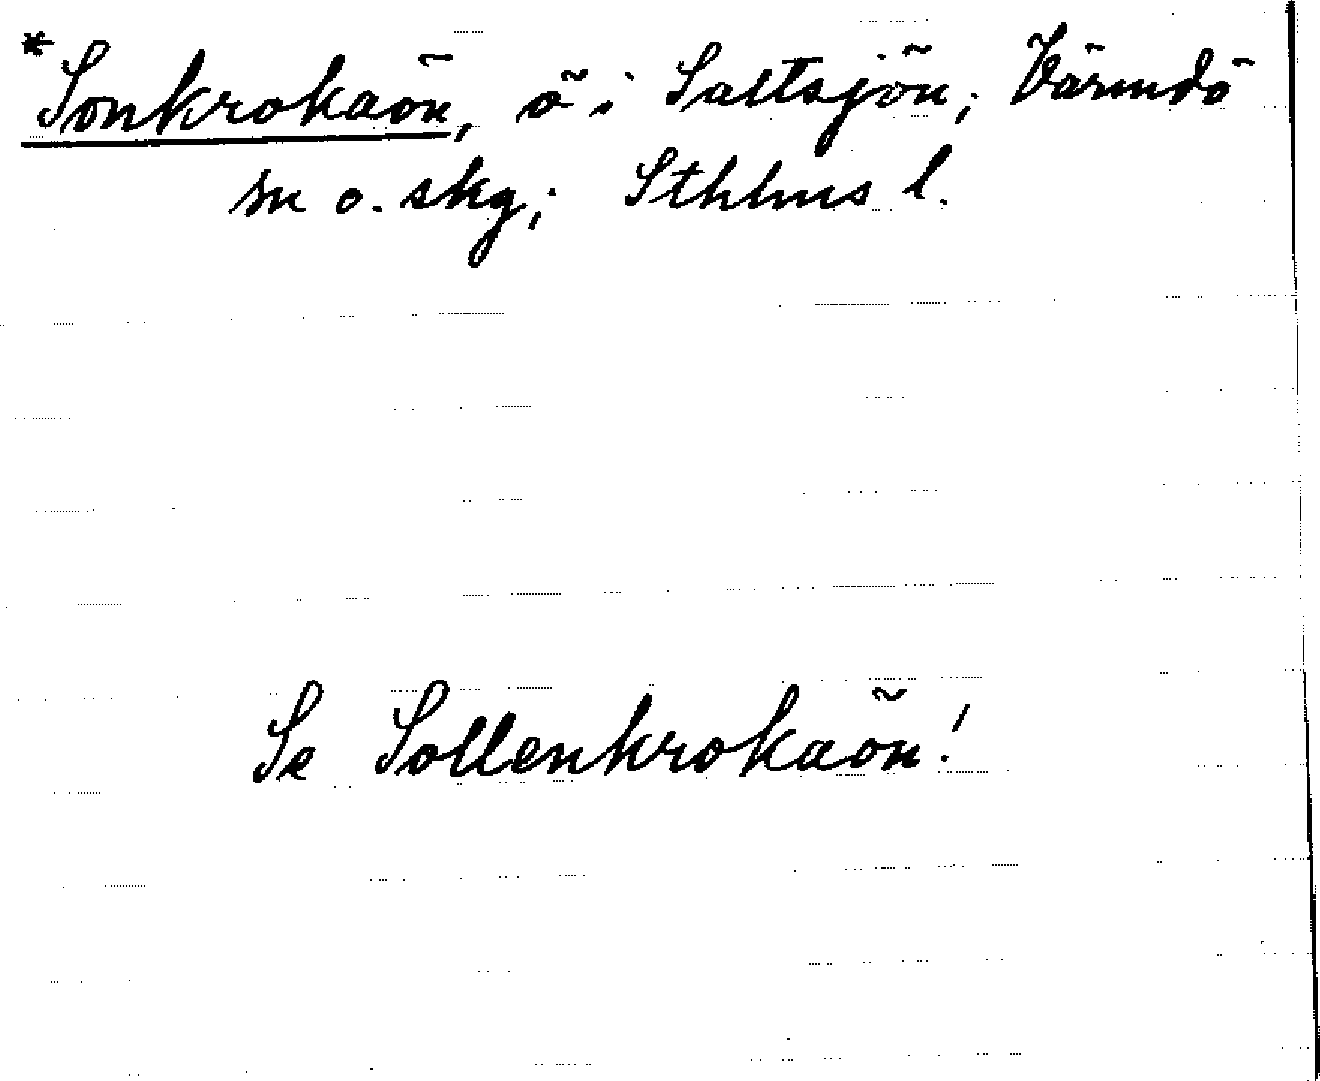 *Sonkrokaön, ö i Saltsjön; Värmdö
sn o. skg; Sthlms l.
Se Sollenkrokaön!